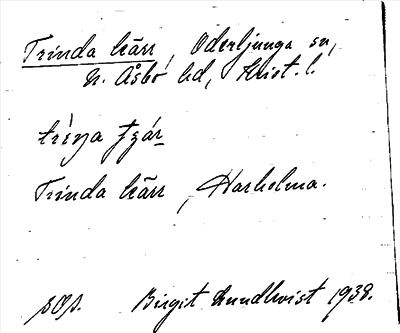 Trinda kärr, Oderljunga sn,
N. Åsbo hd, Krist. l.
Trinda kärr, Harholma.
sop. Birgit Lundkvist 1938.